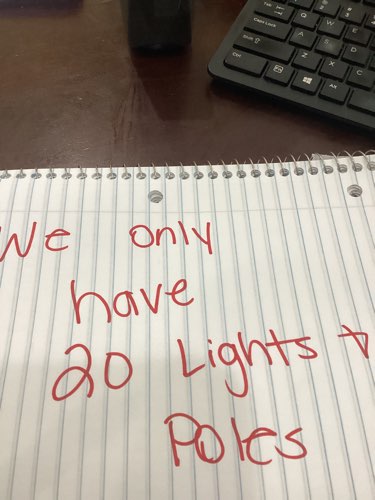 We only
have
20 Lights +
Poles
Caps Lock
A
S
D
Shift
Z
X
C
Ctrl
Alt
Q
W
E